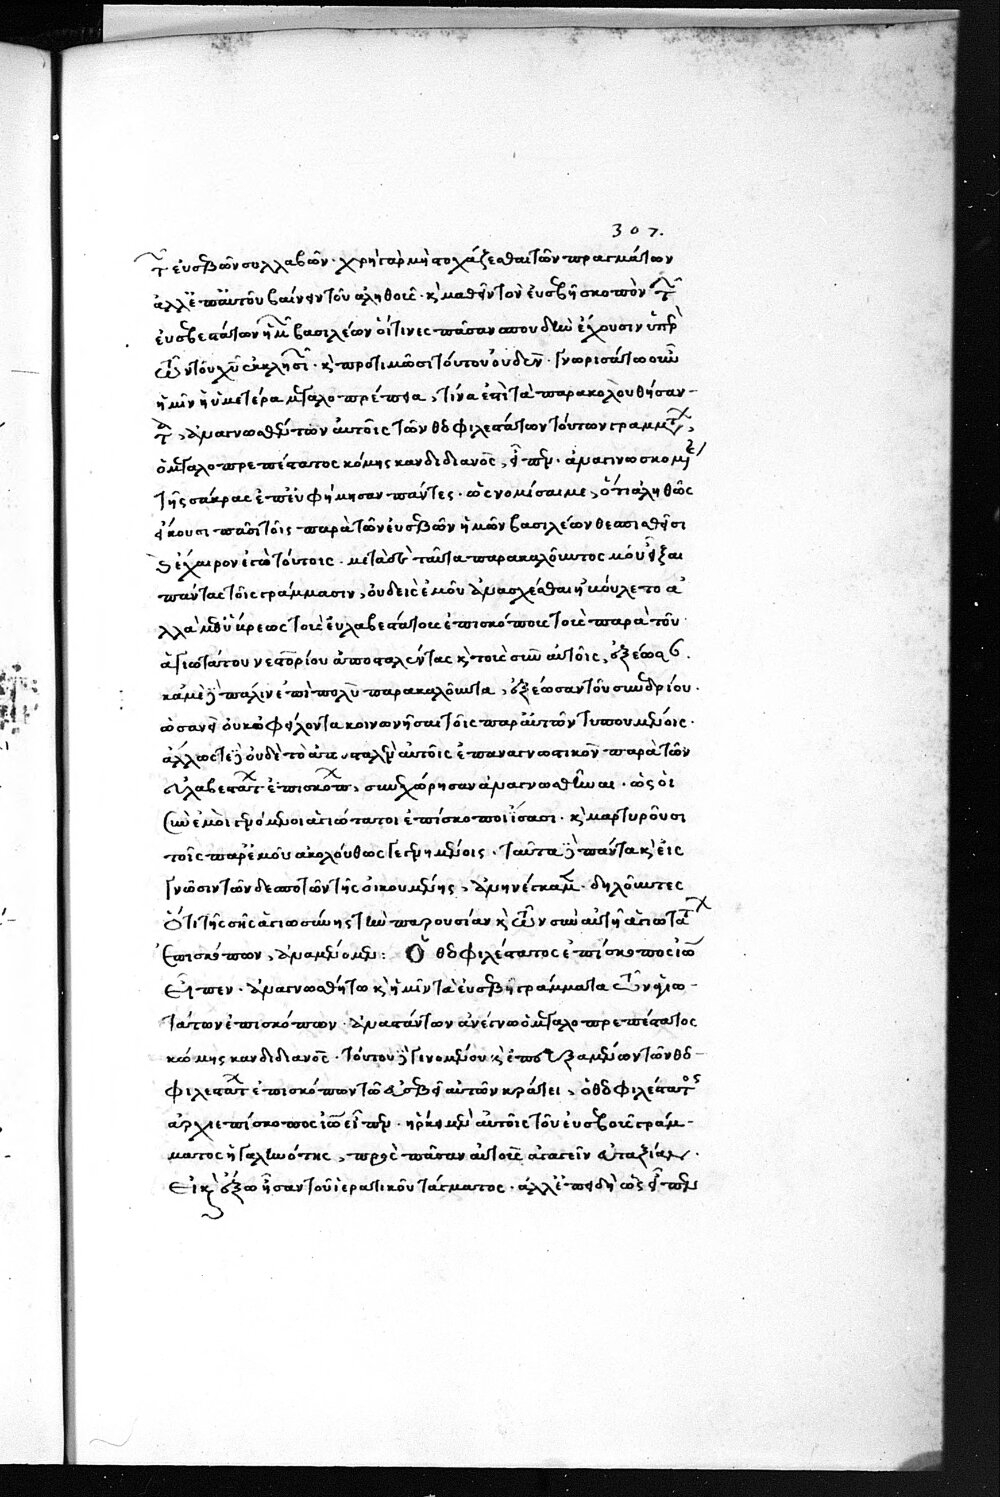 307.
τ εὐσεβῶν συλλαβῶν · χρὴ γὰρ μὴ στοχάζεσθαι τῶν πραγμάτων
ἀλλ' ἐπ' αὐτοῦ βαίνειν τοῦ ἀληθοῦς · κ μαθεῖν τὸν εὐσεβῆ σκοπὸν τ
εὐσεβεστάτων ἡμ βασιλέων οἵτινες πᾶσαν σπουδὴν ἔχουσιν ὑπὲρ
τῶν τοῦ χυ ἐκκλησι · κ προτιμῶσι τούτου οὐδέν · γνωρισάτω οὖν
ἡμῖν ἡ ὑμετέρα μεγαλοπρέπεια, τίνα ἐπὶ τὰ παρακολουθήσαν-
τ, ἀναγνωσθέντων αὐτοῖς τῶν θεοφιλεστάτων τούτων γραμμτ,
ὁ μεγαλοπρεπέστατος κόμης κανδιδιανὸς, εἶπεν · ἀναγινωσκομ
τῆς σάκρας ἐπευφήμησαν πάντες · ὡς νομίσαι με, ὅτι ἀληθῶς
εἴκουσι πᾶσι τοῖς παρὰ τῶν εὐσεβῶν ἡμῶν βασιλέων θεσπισθεῖσι
κ ἔχαιρον ἐπὶ τούτοις · μετὰ δὲ ταῦτα παρακαλοῦντος μου εἶξαι
πάντας τοῖς γράμμασιν, οὐδεὶς ἐμοῦ ἀνασχέσθαι ἠβούλετο ἀ
λλὰ μεθ' ὕβρεως τοὺς εὐλαβεστάτους ἐπισκόπους τοὺς παρὰ τοῦ
ἁγιωτάτου νεστορίου ἀποσταλέντας κ τοὺς σὺν αὐτοῖς, ἐξέωσ .
κἀμὲ δὲ πάλιν ἐπὶ πολὺ παρακαλοῦντα, ἐξέωσαν τοῦ συνεδρίου ·
ὡσανεὶ οὐκ ὀφείλοντα κοινωνῆσαι τοῖς παρ' αὐτῶν τυπουμένοις ·
ἄλλως τε δὲ οὐδὲ τὸ ἀπεσταλμὲν αὐτοῖς ἐπαναγνωστικὸν παρὰ τῶν
εὐλαβεστάτ ἐπισκόπ, συνεχώρησαν ἀναγνωσθῆναι · ὡς οἱ
σὺν ἐμοὶ γενόμενοι ἁγιώτατοι ἐπίσκοποι ἴσασι · κ μαρτυροῦσι
τοῖς παρ' ἐμοῦ ἀκολούθως γεγενημένοις · ταῦτα δὲ πάντα κ εἰς
γνῶσιν τῶν δεσποτῶν τῆς οἰκουμένης, ἀνηνέγκαμεν · δηλοῦντες
ὅτι τῆς σῆς ἁγιωσύνης τὴν παρουσίαν κ τῶν σὺν αὐτῇ ἁγιωτατ
ἐπισκόπων, ἀναμένομεν : Ὁ θεοφιλέστατος ἐπίσκοπος ἰω
εἶπεν · ἀναγνωσθήτω κ ἡμῖν τὰ εὐσεβῆ γράμματα τῶν ἁγιω-
τάτων ἐπισκόπων · ἀναστάντων ἀνέγνω ὁ μεγαλοπρεπέστατος
κόμης κανδιδιανός · τούτου δὲ γινομένου κ ἐπευξαμένων τῶν θεο-
φιλεστάτ ἐπισκόπων τῷ εὐσεβεῖ αὐτῶν κράτει, ὁ θεοφιλέστατος
ἀρχιεπίσκοπος ἰω εἶπεν · ἤρκει μὲν αὐτοῖς τοῦ εὐσεβοῦς γράμ-
ματος ἡ γαληνότης, πρὸς πᾶσαν αὐτοὺς ἀγαγεῖν εὐταξίαν ·
εἰ κ ἔξω ἦσαν τοῦ ἱερατικοῦ τάγματος · ἀλλ' ἐπειδὴ ὡς εἶπεν